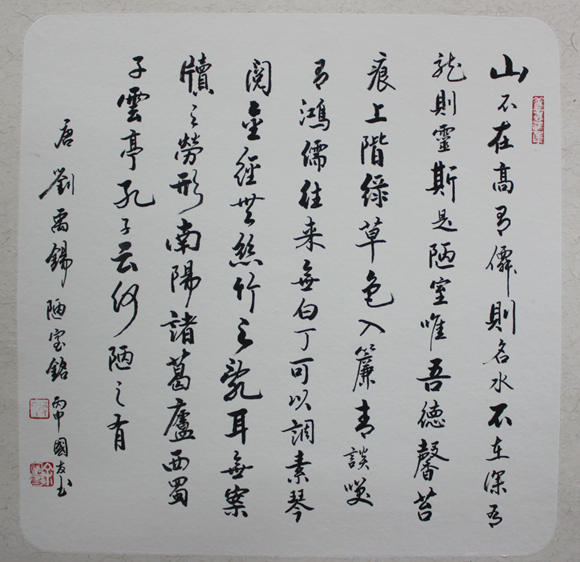 山不在高有僊則名水不在深有
龍則靈斯是陋室唯吾德馨苔
痕上階綠草色入簾青談咲
有鴻儒往来無白丁可以調素琴
閱金經無絲竹之亂耳無案
牘之勞形南陽諸葛廬西蜀
子雲亭孔子云何陋之有
唐劉禹錫陋室銘丙申國友书